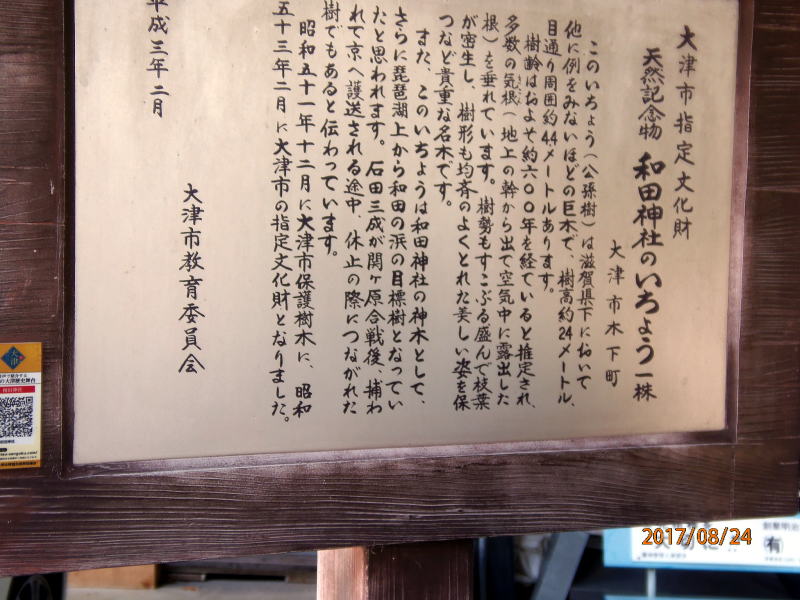 大津市指定文化財
天然記念物 和田神社のいちょう一株
大津市木下町
このいちょう(公孫樹)は滋賀県下において
他に例をみないほどの巨木で、樹高約24メートル、
目通り周囲約4.4メートルあります。
樹齢はおよそ約六〇〇年を経ていると推定され、
多数の気根(地上の幹から出て空気中に露出した
根)を垂れています。樹勢もすこぶる盛んで枝葉
が密生し、樹形も均斉のよくとれた美しい姿を保
つなど貴重な名木です。
また、このいちょうは和田神社の神木として、
さらに琵琶湖上から和田の浜の目標樹となってい
たと思われます。石田三成が関ヶ原合戦後、捕わ
れて京へ護送される途中、休止の際につながれた
樹でもあると伝わっています。
昭和五十一年十二月に大津市保護樹木に、昭和
五十三年二月に大津市の指定文化財となりました。
平成三年二月
大津市教育委員会
2017/08/24
(有)